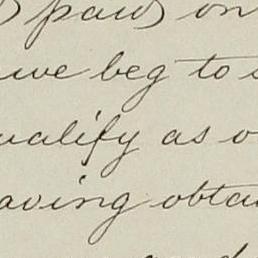 paid on
we beg to
ualify as o
aving obtai